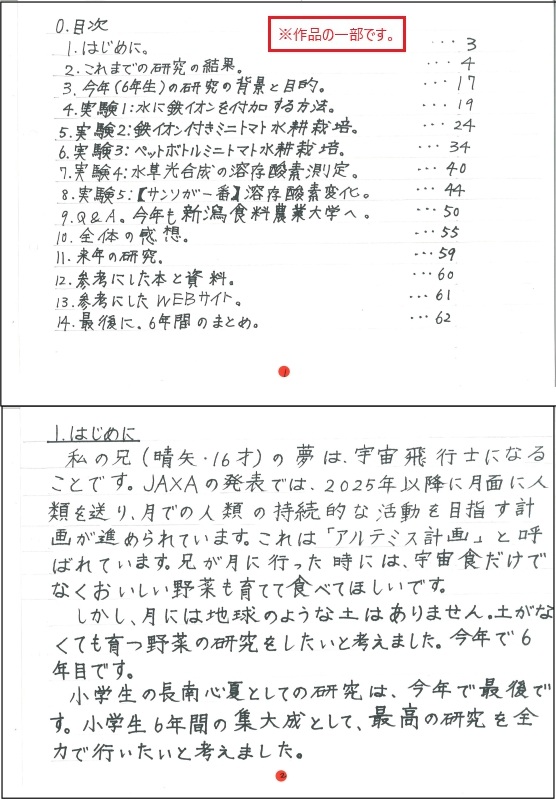 ※作品の一部です。
0.目次
1.はじめに。 … 3
2.これまでの研究の結果。 … 4
3.今年(6年生)の研究の背景と目的。 … 17
4.実験1:水に鉄イオンを付加する方法。 … 19
5.実験2:鉄イオン付きミニトマト水耕栽培。 … 24
6.実験3:ペットボトルミニトマト水耕栽培。 … 34
7.実験4:水草光合成の溶存酸素測定。 … 40
8.実験5:【サンソが一番】溶存酸素変化。 … 44
9.Q&A。今年も新潟食料農業大学へ。 … 50
10.全体の感想。 … 55
11.来年の研究。 … 59
12.参考にした本と資料。 … 60
13.参考にしたWEBサイト。 … 61
14.最後に、6年間のまとめ。 … 62
1
1.はじめに
私の兄(晴矢・16才)の夢は、宇宙飛行士になる
ことです。JAXAの発表では、2025年以降に月面に人
類を送り、月での人類の持続的な活動を目指す計
画が進められています。これは「アルテミス計画」と呼
ばれています。兄が月に行った時には、宇宙食だけで
なくおいしい野菜も育てて食べてほしいです。
しかし、月には地球のような土はありません。土がな
くても育つ野菜の研究をしたいと考えました。今年で6
年目です。
小学生の長南心夏としての研究は、今年で最後で
す。小学生6年間の集大成として、最高の研究を全
力で行いたいと考えました。
2